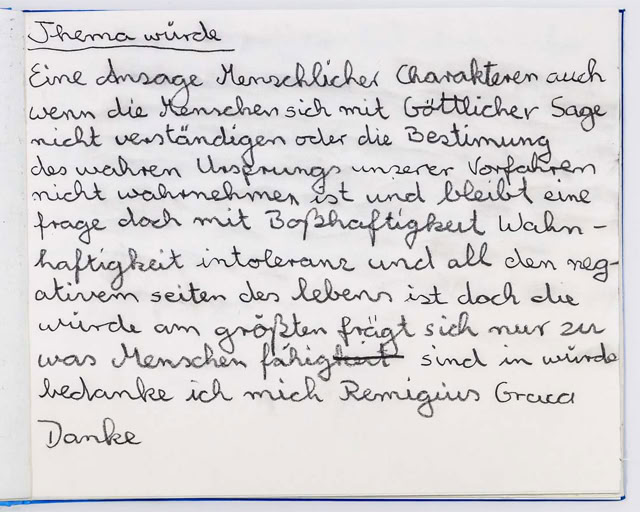 Thema würde
Eine Ansage Menschlicher Charakteren auch
wenn die Menschen sich mit Göttlicher Sage
nicht verständigen oder die Bestimung
des wahren Ursprungs unserer Vorfahren
nicht wahrnehmen ist und bleibt eine
frage doch mit Boßhaftigkeit Wahn-
haftigkeit intoleranz und all den neg-
ativem seiten des lebens ist doch die
würde am größten frägt sich nur zu
was Menschen fähig sind in würde
bedanke ich mich Remigius
Danke